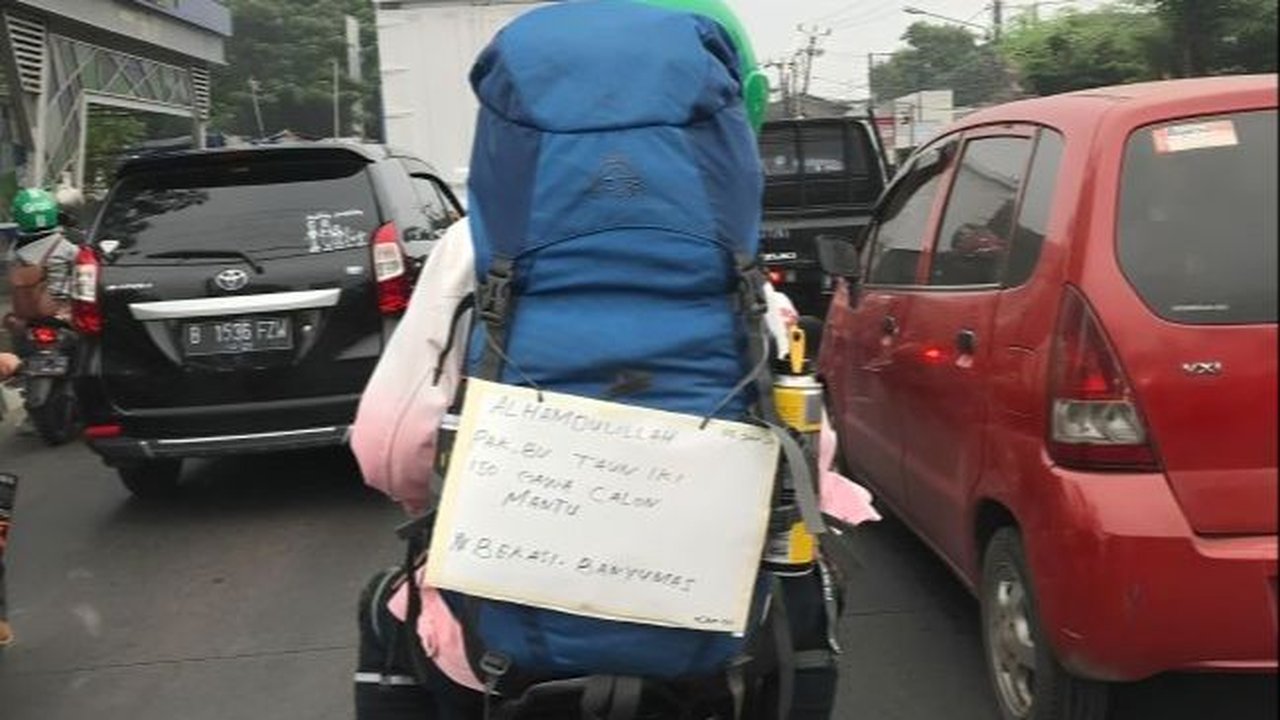 ALHAMDULILLAH
PAK.BU TAUN IKI
ISO GAWA CALON
MANTU
# BEKASI - BANYUMAS
B 1536 FZW
VXi